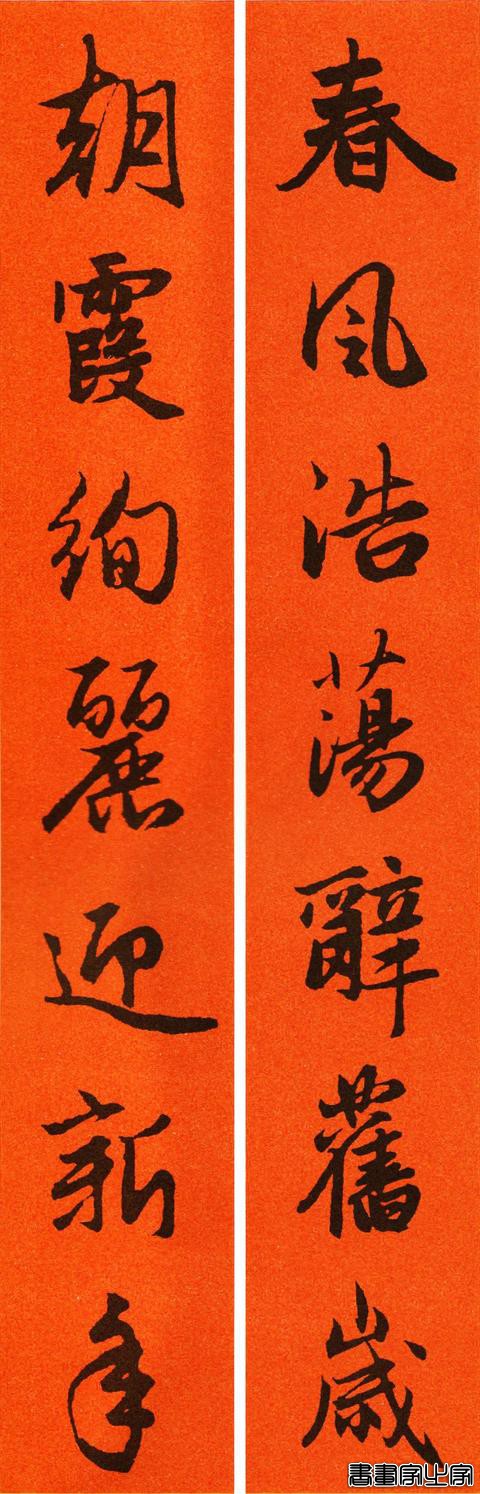 春風浩蕩辭舊歲
朝霞絢麗迎新年
書畫家必字